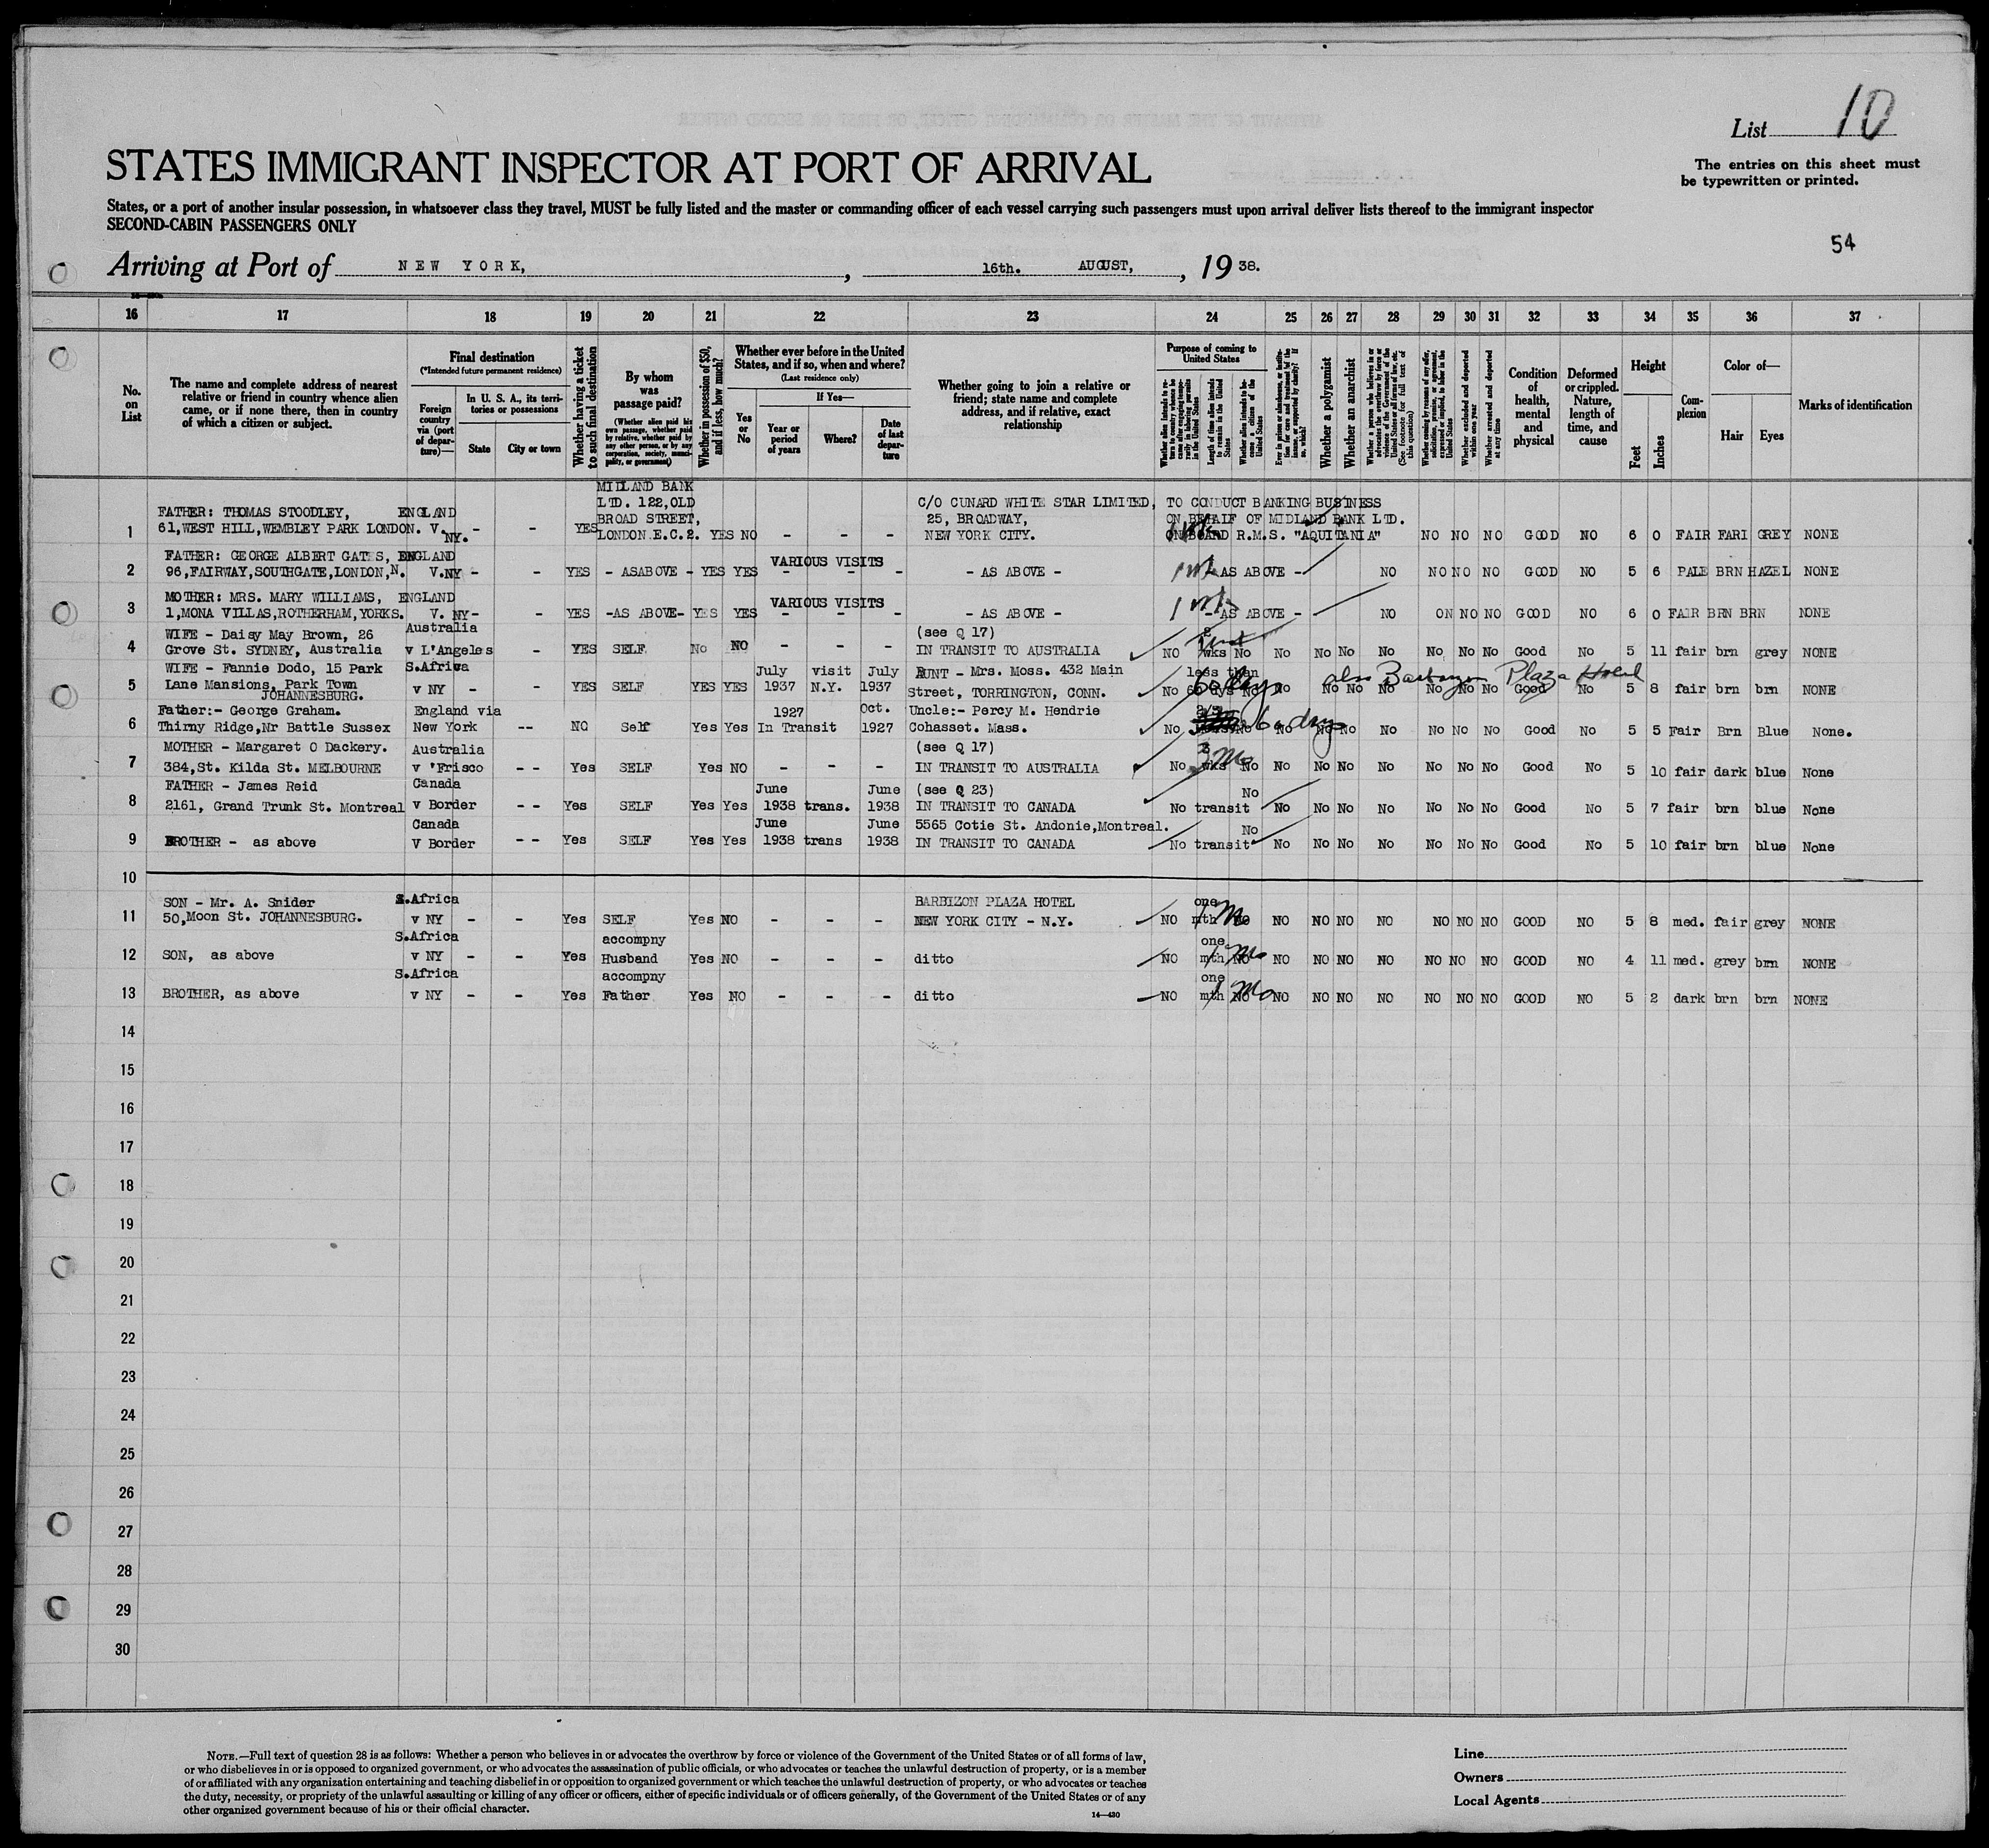 List 10
The entries on this sheet must
be typewritten or printed.
STATES IMMIGRANT INSPECTOR AT PORT OF ARRIVAL
States, or a port of another insular possession, in whatsoever class they travel, MUST be fully listed and the master or commanding officer of each vessel carrying such passengers must upon arrival deliver lists thereof to the immigrant inspector
SECOND-CABIN PASSENGERS ONLY
54
Arriving at Port of NEW YORK, , 16th. AUGUST, , 19 38.
16 17 18 19 20 21 22 23 24 25 26 27 28 29 30 31 32 33 34 35 36 37
No. on List
The name and complete address of nearest relative or friend in country whence alien came, or if none there, then in country of which a citizen or subject.
Final destination
(*Intended future permanent residence)
Foreign country via (port of departure)—
In U. S. A., its territories or possessions
State
City or town
Whether having a ticket to such final destination
By whom was passage paid?
(Whether alien paid his own passage, whether paid by relative, whether paid by any other person, or by any corporation, society, municipality, or government)
Whether in possession of $50, and if less, how much?
Whether ever before in the United States, and if so, when and where?
(Last residence only)
Yes or No
If Yes—
Year or period of years
Where?
Date of last departure
Whether going to join a relative or friend; state name and complete address, and if relative, exact relationship
Purpose of coming to United States
Length of time alien intends to remain in the United States
Whether alien intends to become a citizen of the United States
Whether a polygamist
Whether an anarchist
Whether excluded and deported within one year
Whether arrested and deported at any time
Condition of health, mental and physical
Deformed or crippled. Nature, length of time, and cause
Height
Feet
Inches
Complexion
Color of—
Hair
Eyes
Marks of identification
MIDLAND BANK
LTD. 122,OLD C/O CUNARD WHITE STAR LIMITED, TO CONDUCT BANKING BUSINESS
FATHER: THOMAS STOODLEY, ENGLAND BROAD STREET, 25, BROADWAY, ON BEHALF OF MIDLAND BANK LTD.
1 61,WEST HILL,WEMBLEY PARK LONDON. V. NY. - - YES LONDON.E.C.2. YES NO - - - NEW YORK CITY. ON BOARD R.M.S. "AQUITANIA" NO NO NO GOOD NO 6 0 FAIR FARI GREY NONE
FATHER: GEORGE ALBERT GATES, ENGLAND VARIOUS VISITS
2 96,FAIRWAY,SOUTHGATE,LONDON,N. V.NY - - YES - ASABOVE - YES YES - - - - AS ABOVE - - AS ABOVE - NO NO NO NO GOOD NO 5 6 PALE BRN HAZEL NONE
MOTHER: MRS. MARY WILLIAMS, ENGLAND VARIOUS VISITS
3 1,MONA VILLAS,ROTHERHAM,YORKS. V. NY- - YES -AS ABOVE- YES YES - - - - AS ABOVE - - AS ABOVE - NO ON NO NO GOOD NO 6 0 FAIR BRN BRN NONE
WIFE - Daisy May Brown, 26 Australia (see Q 17) 2
4 Grove St. SYDNEY, Australia v L'Angeles - YES SELF No NO - - - IN TRANSIT TO AUSTRALIA NO wks No No No No No No No No Good No 5 11 fair brn grey NONE
WIFE - Fannie Dodo, 15 Park S.Africa July visit July AUNT - Mrs. Moss. 432 Main less than also Barbizon Plaza Hotel
5 Lane Mansions, Park Town v NY - - YES SELF YES YES 1937 N.Y. 1937 Street, TORRINGTON, CONN. No 60 dys No 60 days No No No No No No No Good No 5 8 fair brn brn NONE
JOHANNESBURG.
Father:- George Graham. England via 1927 Oct. Uncle:- Percy M. Hendrie
6 Thirny Ridge,Nr Battle Sussex New York -- NO Self Yes Yes In Transit 1927 Cohasset. Mass. No 60 days No No No No No No No No Good No 5 5 Fair Brn Blue None.
MOTHER - Margaret O Dackery. Australia (see Q 17)
7 384,St. Kilda St. MELBOURNE v 'Frisco - - Yes SELF Yes NO - - - IN TRANSIT TO AUSTRALIA No wks No No No No No No No No Good No 5 10 fair dark blue None
FATHER - James Reid Canada June June (see Q 23) No
8 2161, Grand Trunk St. Montreal v Border - - Yes SELF Yes Yes 1938 trans. 1938 IN TRANSIT TO CANADA No transit No No No No No No No Good No 5 7 fair brn blue None
Canada June June 5565 Cotie St. Andonie,Montreal. No
9 BROTHER - as above V Border - - Yes SELF Yes Yes 1938 trans 1938 IN TRANSIT TO CANADA No transit No No No No No No No Good No 5 10 fair brn blue None
10
SON - Mr. A. Snider S.Africa BARBIZON PLAZA HOTEL one
11 50,Moon St. JOHANNESBURG. v NY - - Yes SELF Yes NO - - - NEW YORK CITY - N.Y. NO mth No 1 Mo NO NO NO NO NO NO NO GOOD NO 5 8 med. fair grey NONE
S.Africa accompny one
12 SON, as above v NY - - Yes Husband Yes NO - - - ditto NO mth NO 1 Mo NO NO NO NO NO NO NO GOOD NO 4 11 med. grey brn NONE
S.Africa accompny one
13 BROTHER, as above v NY - - Yes Father Yes NO - - - ditto NO mth NO 1 Mo NO NO NO NO NO NO NO GOOD NO 5 2 dark brn brn NONE
14
15
16
17
18
19
20
21
22
23
24
25
26
27
28
29
30
NOTE.—Full text of question 28 is as follows: Whether a person who believes in or advocates the overthrow by force or violence of the Government of the United States or of all forms of law,
or who disbelieves in or is opposed to organized government, or who advocates the assassination of public officials, or who advocates or teaches the unlawful destruction of property, or is a member
of or affiliated with any organization entertaining and teaching disbelief in or opposition to organized government or which teaches the unlawful destruction of property, or who advocates or teaches
the duty, necessity, or propriety of the unlawful assaulting or killing of any officer or officers, either of specific individuals or of officers generally, of the Government of the United States or of any
other organized government because of his or their official character.
14—430
Line
Owners
Local Agents